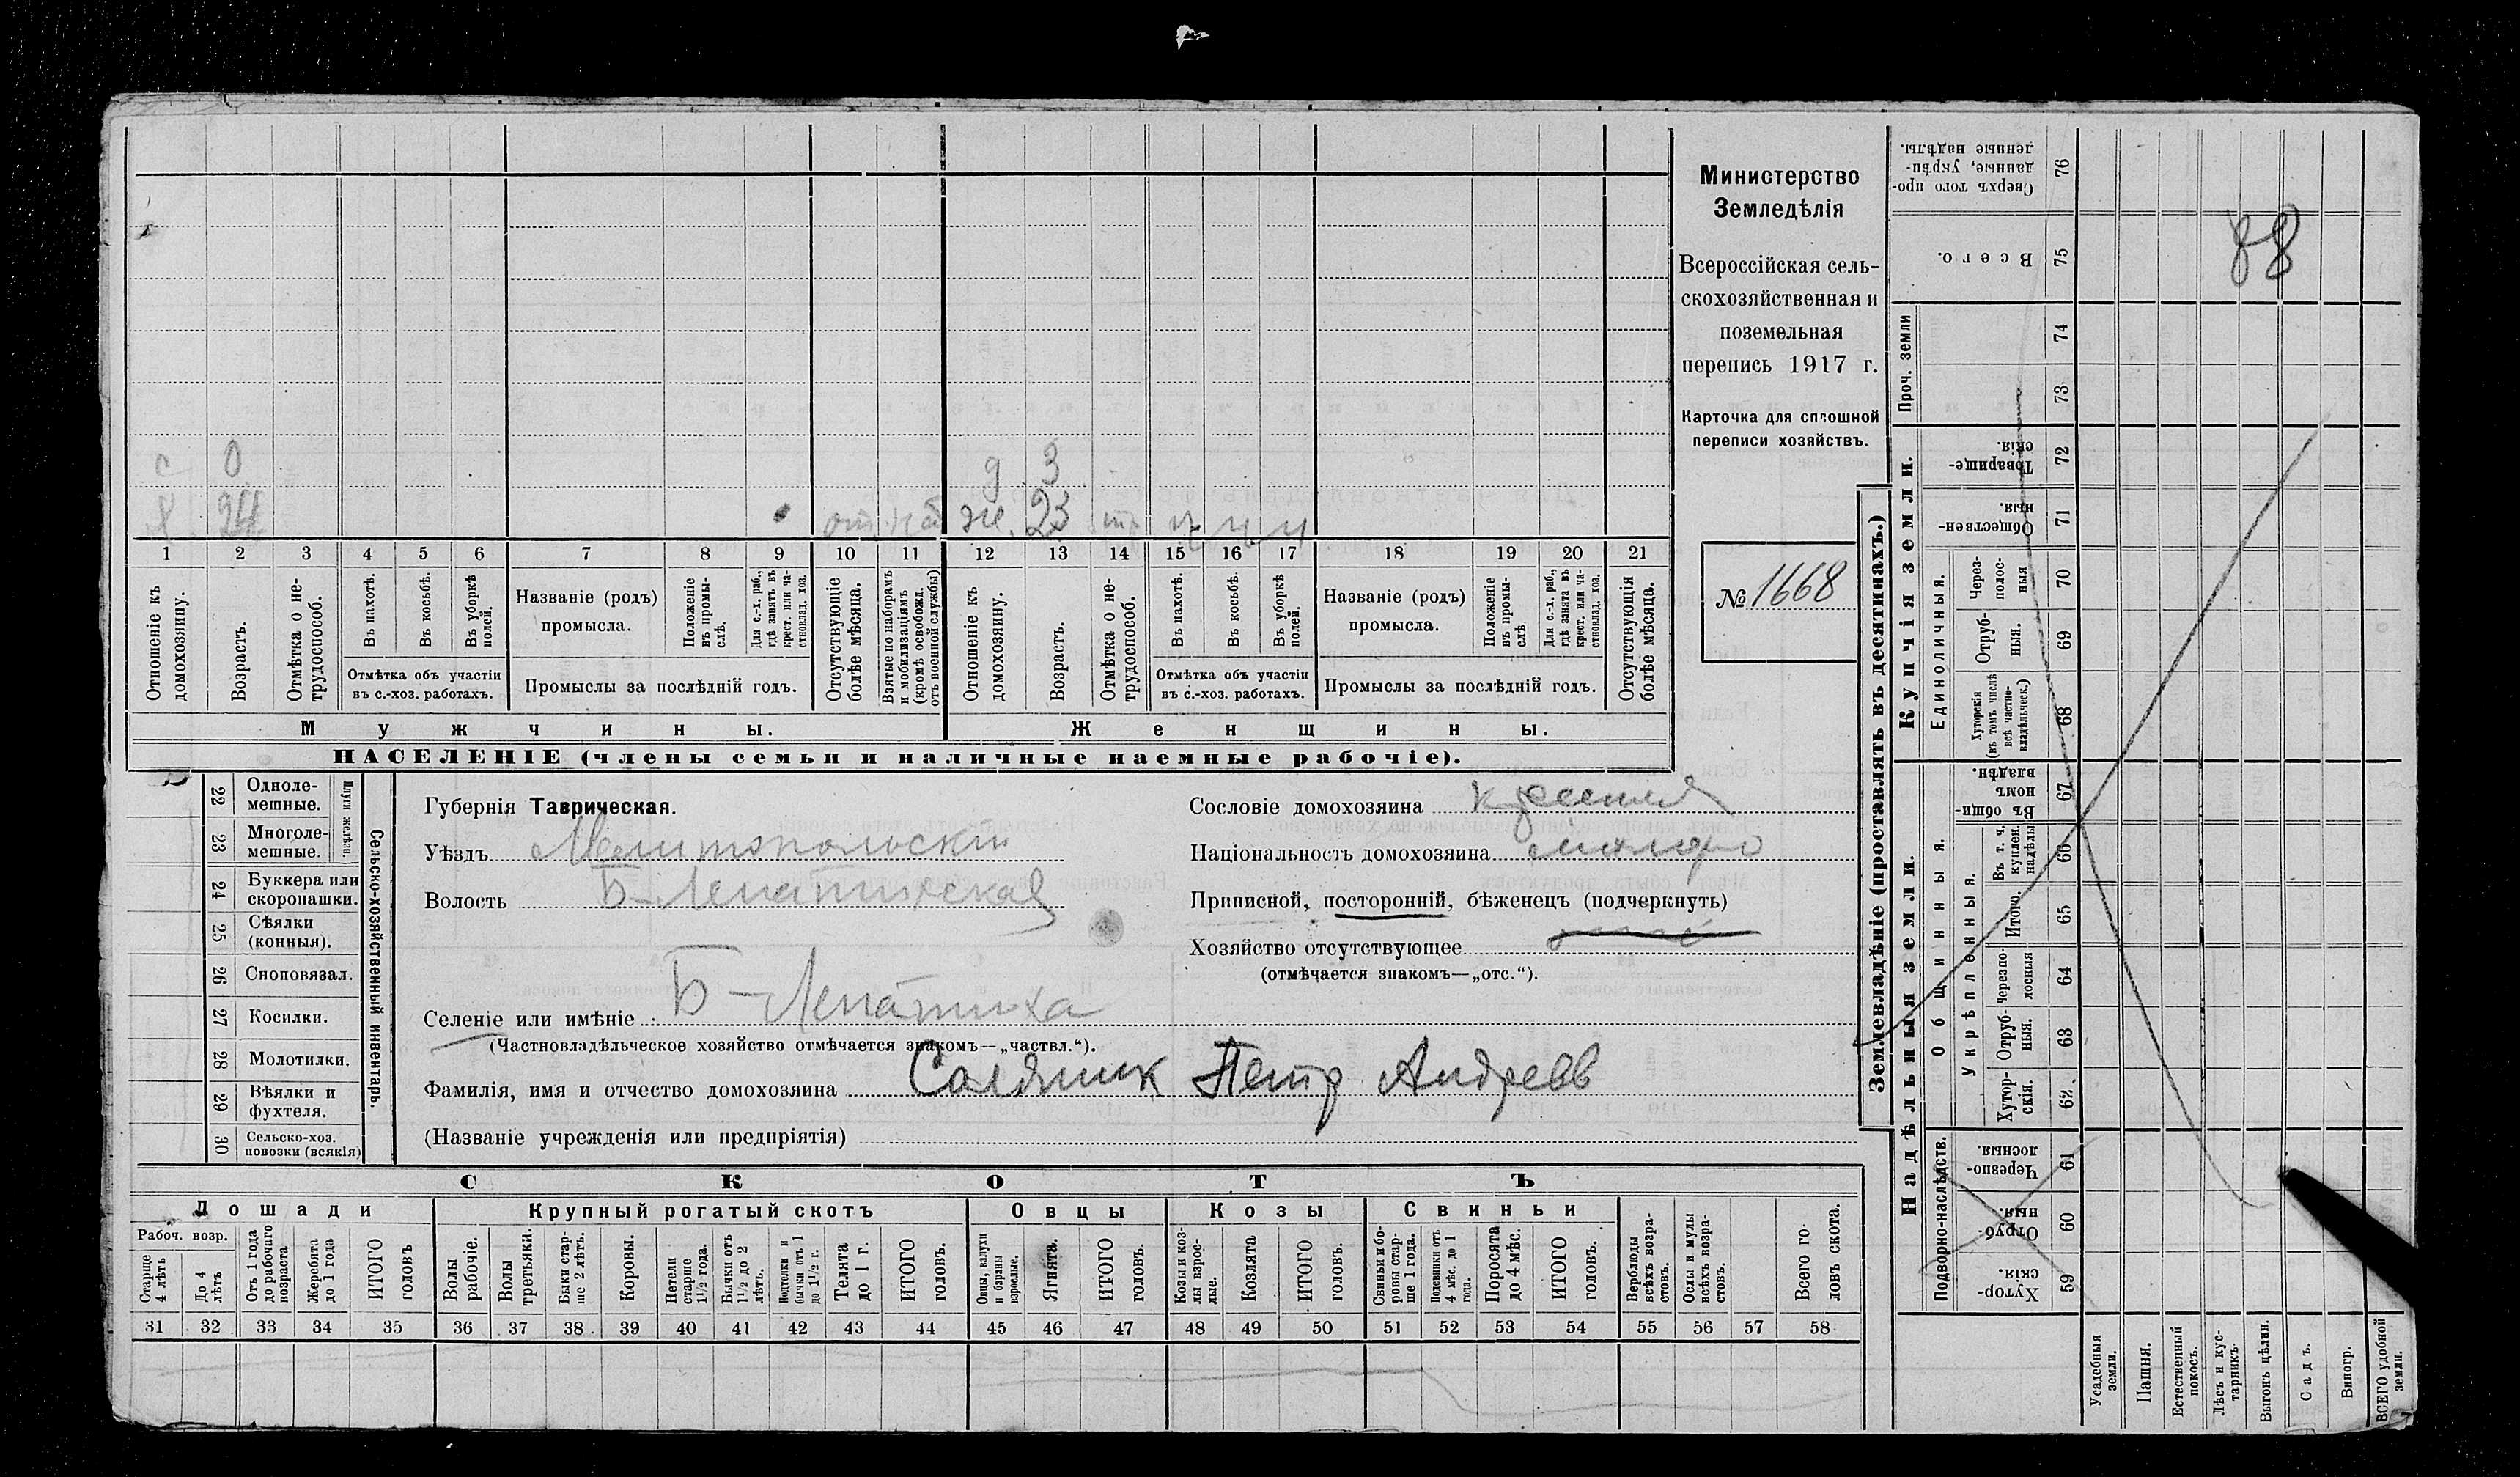 с 0 д 3
24 ж. 23
1 2 3 4 5 6 7 8 9 10 11 12 13 14 15 16 17 18 19 20 21
Отношеніе къ домохозяину.
Возрастъ.
Отмѣтка о нетрудоспособ.
Въ пахотѣ.
Въ косьбѣ.
Въ уборкѣ полей.
Отмѣтка объ участіи
въ с.-хоз. работахъ.
Названіе (родъ)
промысла.
Положеніе въ промыслѣ.
Для с.-х. раб., гдѣ занятъ въ крест. или частновлад. хоз.
Промыслы за послѣдній годъ.
Отсутствующіе болѣе мѣсяца.
Взятые по наборамъ и мобилизаціямъ (кромѣ освобожд. отъ военной службы)
Отношеніе къ домохозяину.
Возрастъ.
Отмѣтка о нетрудоспособ.
Въ пахотѣ.
Въ косьбѣ.
Въ уборкѣ полей.
Отмѣтка объ участіи
въ с.-хоз. работахъ.
Названіе (родъ)
промысла.
Положеніе въ промыслѣ.
Для с.-х. раб., гдѣ занята въ крест. или частновлад. хоз.
Промыслы за послѣдній годъ.
Отсутствующія болѣе мѣсяца.
Мужчины.
Женщины.
НАСЕЛЕНІЕ (члены семьи и наличные наемные рабочіе).
Министерство
Земледѣлія
Всероссійская сель-
скохозяйственная и
поземельная
перепись 1917 г.
Карточка для сплошной
переписи хозяйствъ.
№ 1668
22 Одноле-
мешные.
23 Многоле-
мешные.
Плуги желѣзн.
24 Буккера или
скоропашки.
25 Сѣялки
(конныя).
26 Сноповязал.
27 Косилки.
28 Молотилки.
29 Вѣялки и
фухтеля.
30 Сельско-хоз.
повозки (всякія)
Сельско-хозяйственный инвентарь.
Губернія Таврическая.
Уѣздъ Мелитопольскій
Волость Б-Лепатихская
Селеніе или имѣніе Б-Лепатиха
(Частновладѣльческое хозяйство отмѣчается знакомъ—„частвл.“).
Фамилія, имя и отчество домохозяина Солдяник Петр Андреев
(Названіе учрежденія или предпріятія)
Сословіе домохозяина
Національность домохозяина малоро
Приписной, посторонній, бѣженецъ (подчеркнуть)
Хозяйство отсутствующее
(отмѣчается знакомъ—„отс.“).
СКОТЪ
Лошади
Крупный рогатый скотъ
Овцы
Козы
Свиньи
Рабоч. возр.
Старще 4 лѣтъ
До 4 лѣтъ
Отъ 1 года до рабочаго возраста
Жеребята до 1 года
ИТОГО головъ
Волы рабочіе.
Волы третьяки.
Быки старше 2 лѣтъ.
Коровы.
Нетели старше 1½ года.
Бычки отъ 1½ до 2 лѣтъ.
Подтелки и бычки отъ 1 до 1½ г.
Телята до 1 г.
ИТОГО головъ.
Овцы, валухи и бараны взрослые.
Ягнята.
ИТОГО головъ.
Козы и козлы взрослые.
Козлята
ИТОГО головъ.
Свиньи и боровы старше 1 года.
Подсвинки отъ 4 мѣс. до 1 года.
Поросята до 4 мѣс.
ИТОГО головъ.
Верблюды всѣхъ возрастовъ.
Ослы и мулы всѣхъ возрастовъ.
Всего головъ скота.
31 32 33 34 35 36 37 38 39 40 41 42 43 44 45 46 47 48 49 50 51 52 53 54 55 56 57 58
Землевладѣніе (проставлять въ десятинахъ.)
88
Сверхъ того проданные, укрѣпленные надѣлы. 76
Всего. 75
Проч. земли
74
73
Купчія земли.
Товарищескія. 72
Общественныя. 71
Единоличныя.
Черезполосныя 70
Отрубныя. 69
Хуторскія (въ томъ числѣ всѣ частновладѣльческ.) 68
Надѣльныя земли.
Общинныя.
Въ общинномъ владѣн. 67
Укрѣпленныя.
Въ т. ч. куплен. надѣлы 66
Итого. 65
Черезполосныя 64
Отрубныя. 63
Хуторскія. 62
Подворно-наслѣдств.
Черезполосныя. 61
Отрубныя. 60
Хуторскія. 59
Усадебныя земли.
Пашня.
Естественный покосъ.
Лѣсъ и кустарникъ.
Выгонъ цѣлин.
Садъ.
Виногр.
ВСЕГО удобной земли.